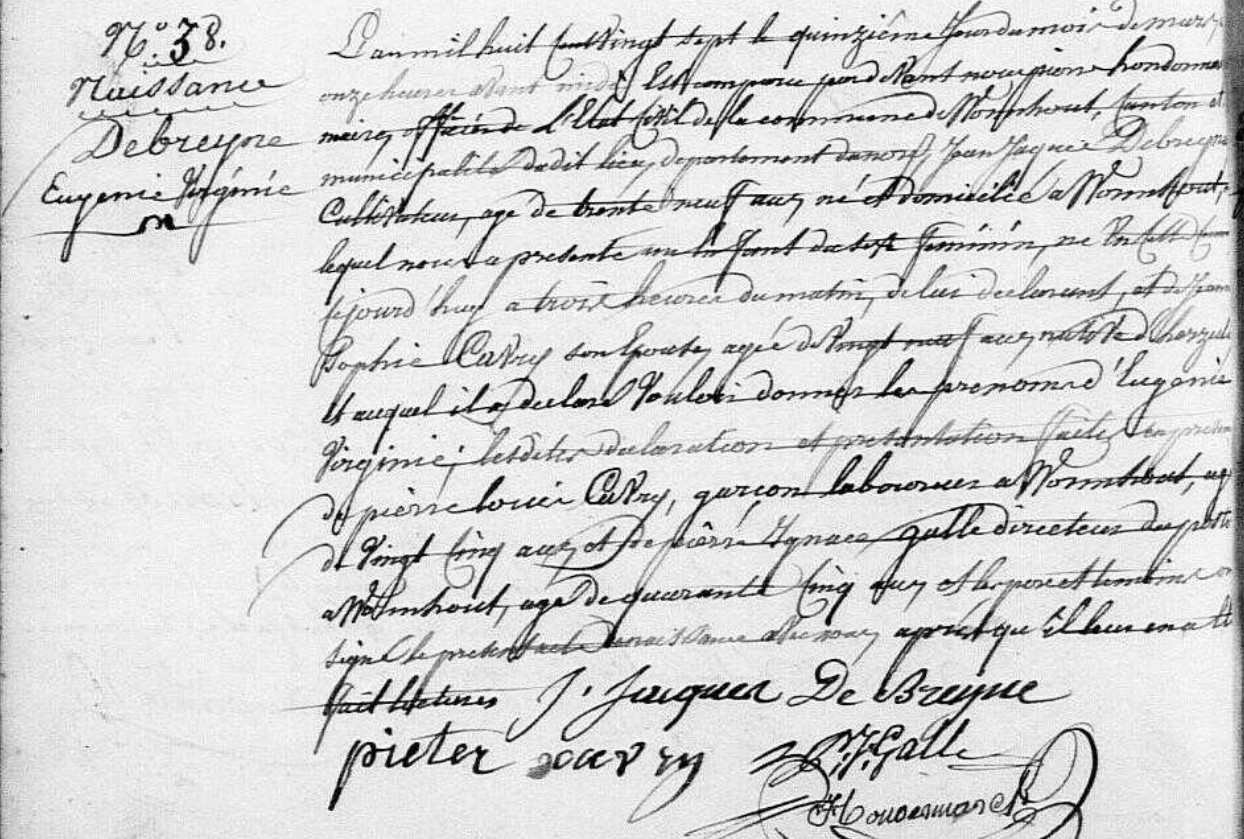 N.o 38.
Naissance
Debreyne
Eugenie Virginie
L'an mil huit cent vingt sept le quinzième jour du mois de mars
onze heures avant midi Est comparu par devant nous pierre
maire, officier de L'Etat Civil de la commune de Wormhout, Canton et
municipalité dudit lieu, departement du nord, Jean Jaques Debreyne
Cultivateur, age de trente neuf ans, né et domicilié a Wormhout,
lequel nous a presenté un Enfant du sexe feminin, né
cejourd'huy a trois heures du matin, de lui declarant, et de
Sophie Cavry son Epouse, agée de vingt neuf ans, native d'herzeele
et auquel il a declaré Vouloir donner les prenoms d'Eugenie
Virginie; lesdites declaration et presentation faites en presen
de pierre louis Cavry, garçon laboureur a Wormhout, ag
de Vingt Cinq ans, et de pierre Ignace galle directeur des postes
a Wormhout, age de quarante Cinq ans, et les pere et temoins on
signé le present acte de naissance avec nous, après qu'il leur en a été
fait lecture J. Jaques De Breyne
pieter cavry P. J. Galle